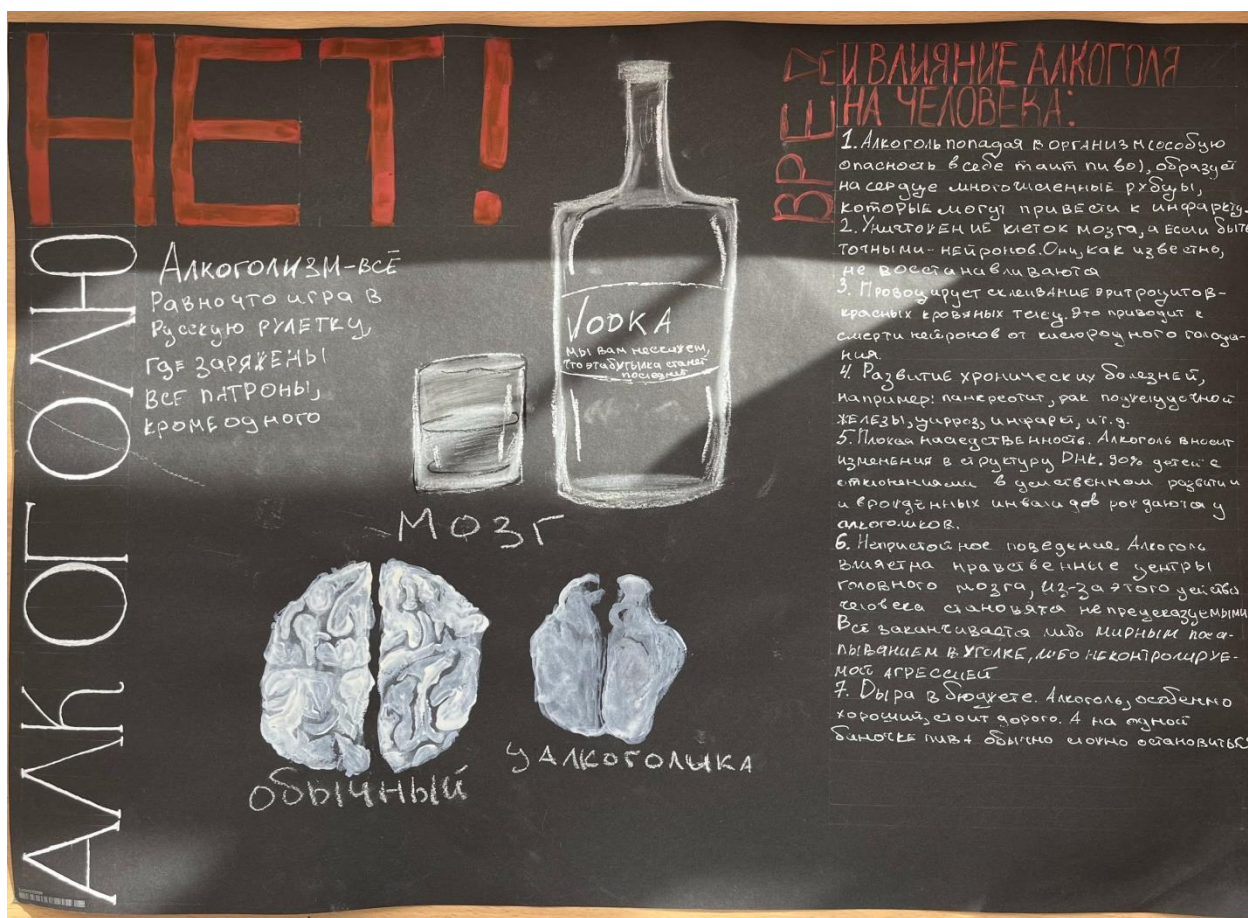 НЕТ!
АЛКОГОЛЮ
АЛКОГОЛИЗМ-ВСЁ
РАВНО ЧТО ИГРА В
РУССКУЮ РУЛЕТКУ,
ГДЕ ЗАРЯЖЕНЫ
ВСЕ ПАТРОНЫ,
КРОМЕ ОДНОГО
VODKA
МЫ ВАМ НЕ СКАЖЕМ,
ЧТО ЭТА БУТЫЛКА СТАНЕТ
ПОСЛЕДНЕЙ
МОЗГ
ОБЫЧНЫЙ
У АЛКОГОЛИКА
ВРЕД
И ВЛИЯНИЕ АЛКОГОЛЯ
НА ЧЕЛОВЕКА:
1. Алкоголь попадая в организм (особую
опасность в себе таит пиво), образует
на сердце многочисленные рубцы,
которые могут привести к инфаркту.
2. Уничтожение клеток мозга, а если быть
точными-нейронов. Они, как известно,
не восстанавливаются
3. Провоцирует склеивание эритроцитов-
красных кровяных телец. Это приводит к
смерти нейронов от кислородного голода-
ния.
4. Развитие хронических болезней,
например: панкреотит, рак поджелудочной
железы, цирроз, инфаркт, и т.д.
5. Плохая наследственность. Алкоголь вносит
изменения в структуру ДНК. 90% детей с
отклонениями в умственном развитии
и врождённых инвалидов рождаются у
алкоголиков.
6. Непристойное поведение. Алкоголь
влияет на нравственные центры
головного мозга, из-за этого действия
человека становятся непредсказуемыми
Всё заканчивается либо мирным поса-
пыванием в уголке, либо неконтролируе-
мой агрессией
7. Дыра в бюджете. Алкоголь, особенно
хороший, стоит дорого. А на одной
баночке пива обычно сложно остановиться